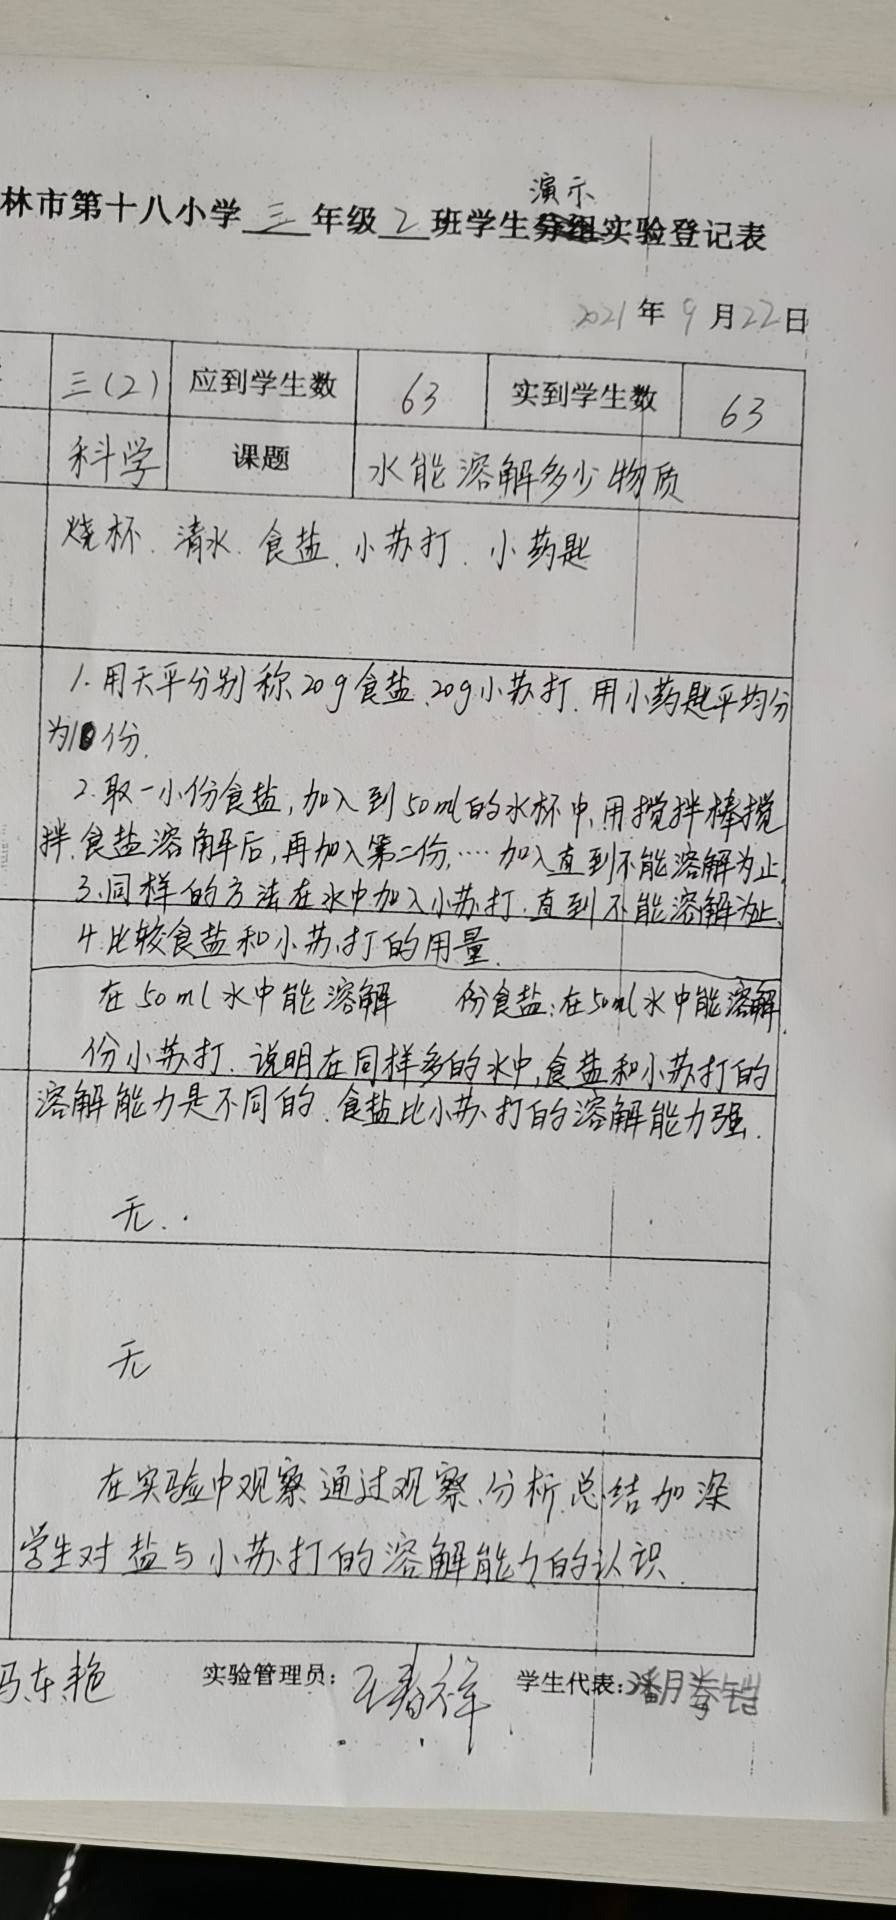 林市第十八小学三年级2班学生实验登记表
演示
2021年9月22日
三(2) 应到学生数 63 实到学生数 63
科学 课题 水能溶解多少物质
烧杯、清水、食盐、小苏打、小药匙
1.用天平分别称20g食盐、20g小苏打.用小药匙平均分
为10份.
2.取一小份食盐,加入到50ml的水杯中,用搅拌棒搅
拌.食盐溶解后,再加入第二份,…加入直到不能溶解为止.
3.同样的方法在水中加入小苏打.直到不能溶解为止.
4.比较食盐和小苏打的用量.
在50ml水中能溶解 份食盐;在50ml水中能溶解
份小苏打.说明在同样多的水中,食盐和小苏打的
溶解能力是不同的.食盐比小苏打的溶解能力强.
无.
无
在实验中观察通过观察、分析总结加深
学生对盐与小苏打的溶解能力的认识.
冯东艳 实验管理员: 学生代表:潘月